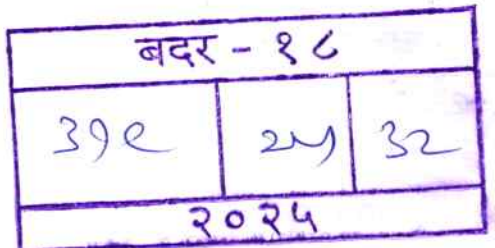 बदर - १८
३१९ २५ ३२
२०२५